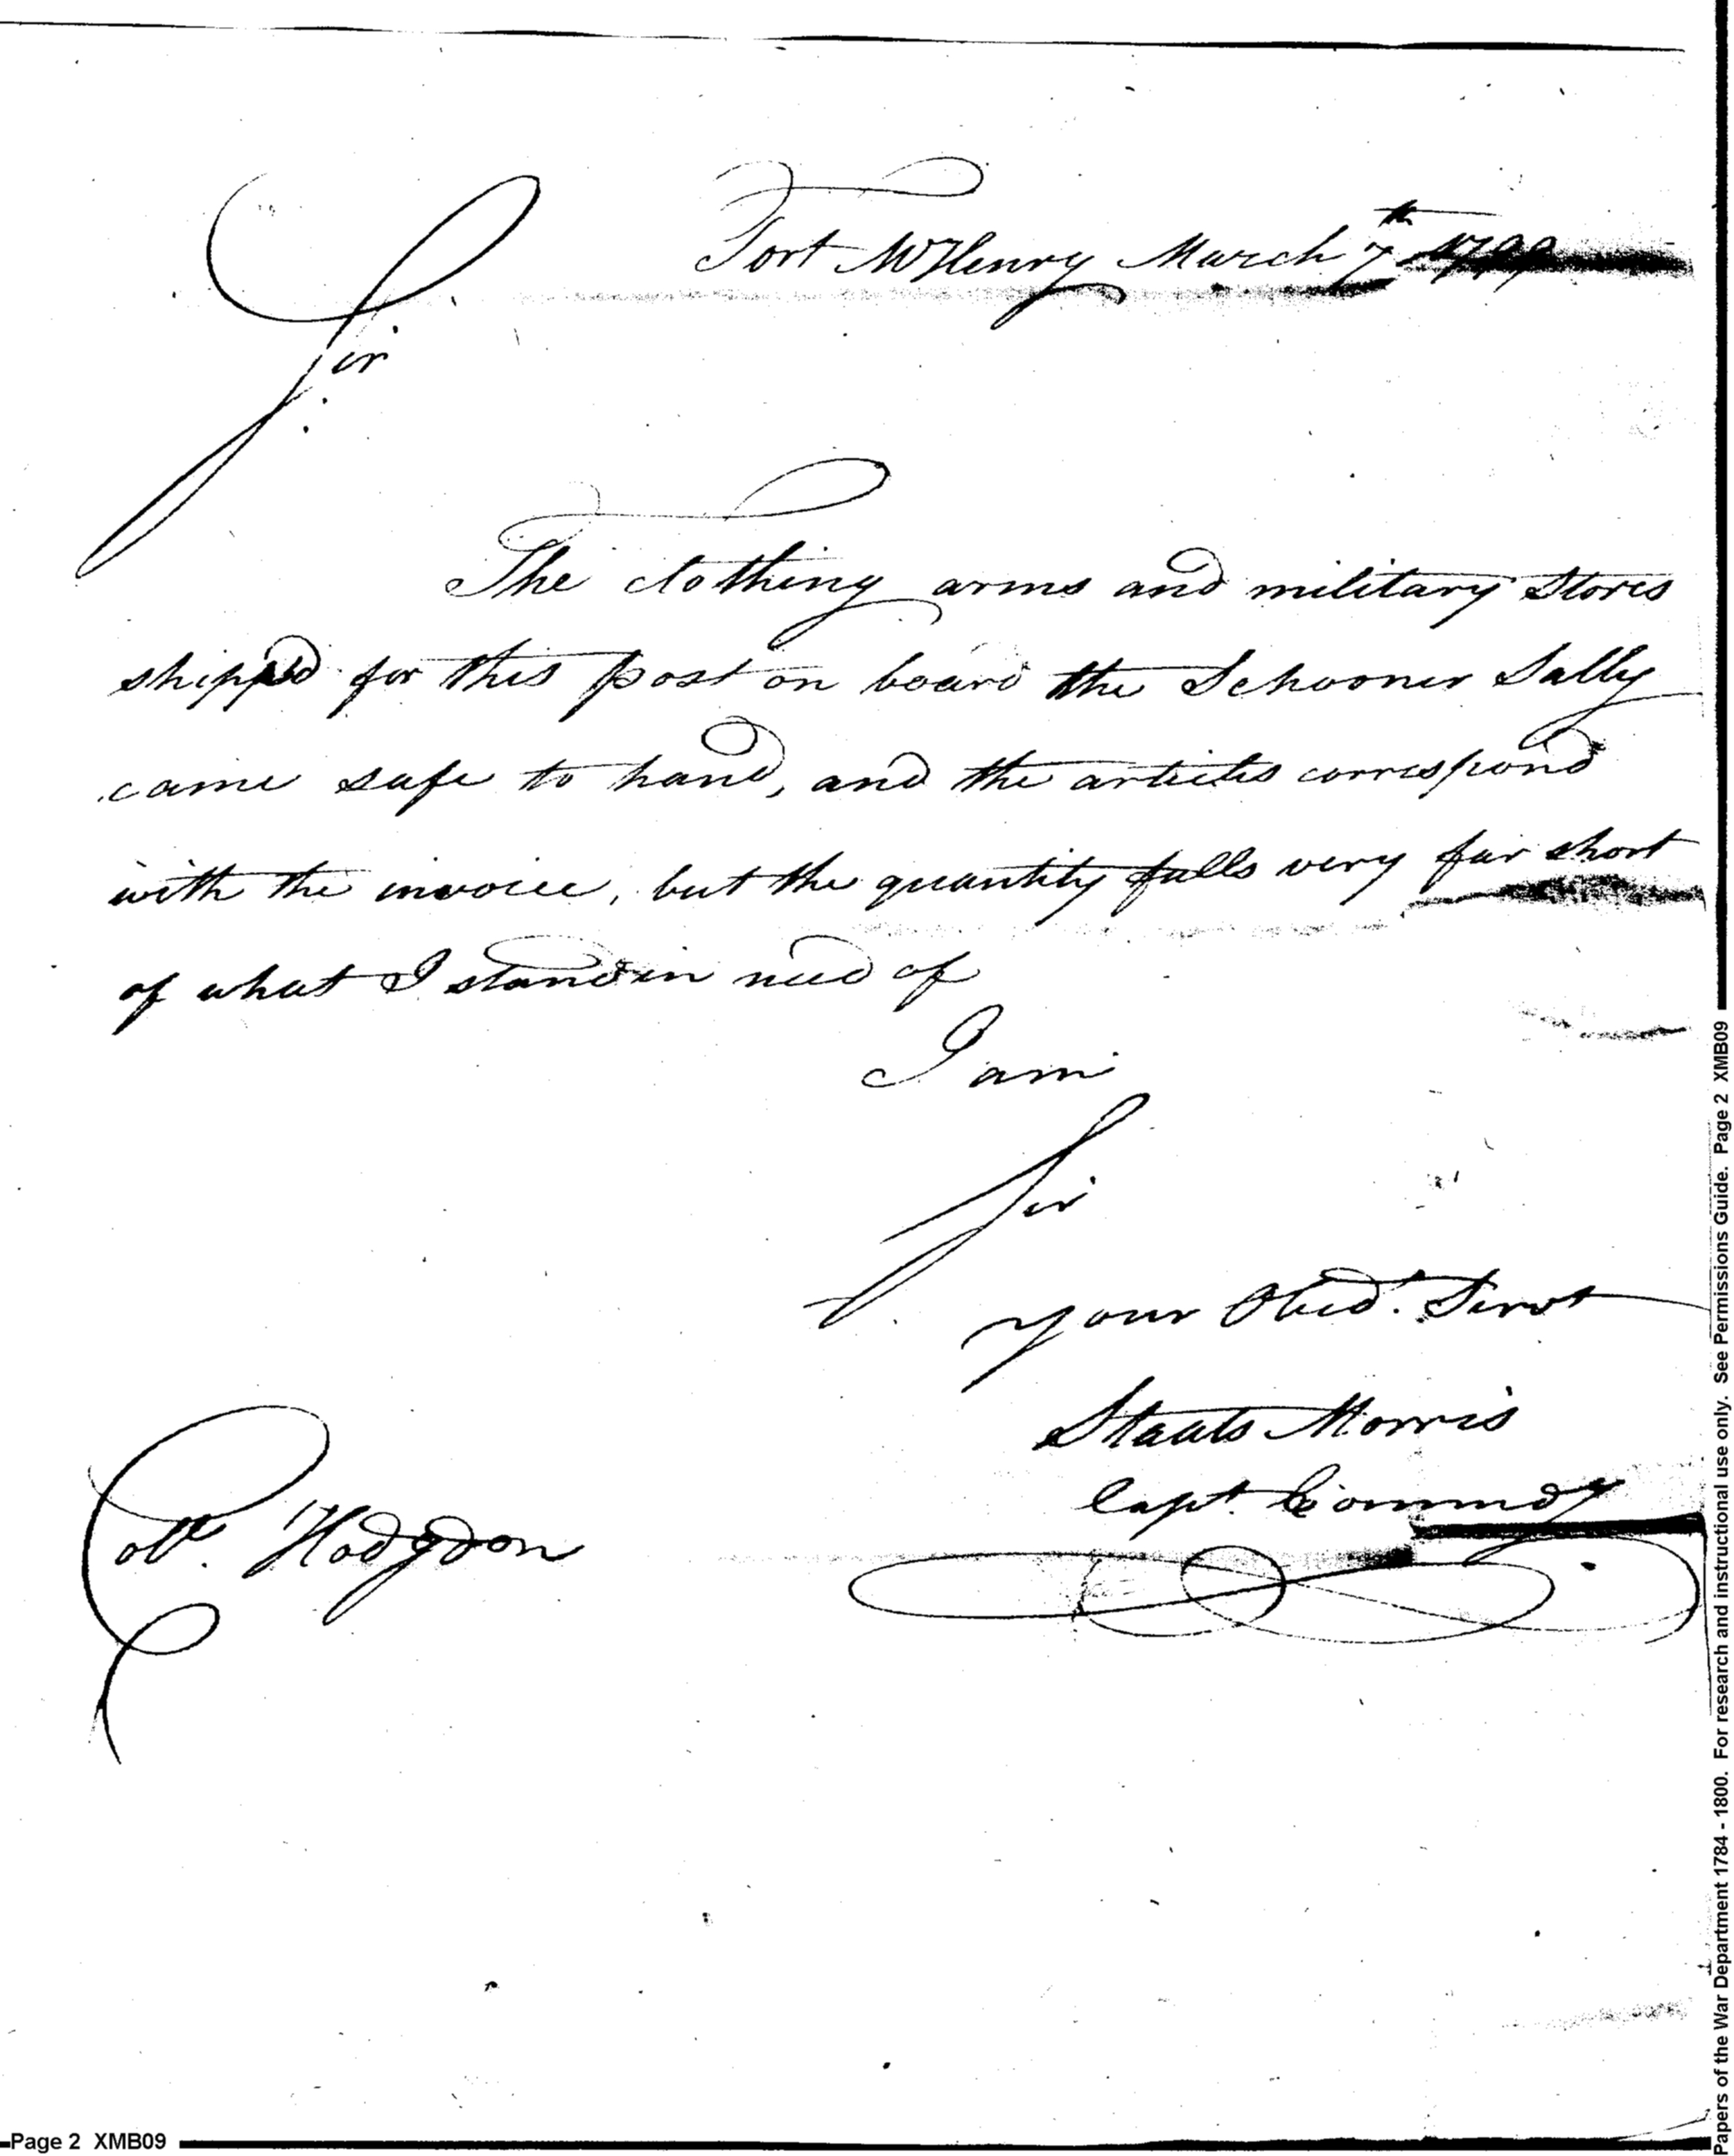 Fort McHenry March 7th 1799
Sir
The clothing arms and military Stores
shipped for this post on board the Schooner Sally
came safe to hand, and the articles correspond
with the invoice, but the quantity falls very far short
of what I stand in need of
I am
Sir
your Obed. Servt
Staats Morris
Capt. Commdg
Coll. Hodgdon
Page 2 XMB09
Papers of the War Department 1784 - 1800. For research and instructional use only. See Permissions Guide. Page 2 XMB09